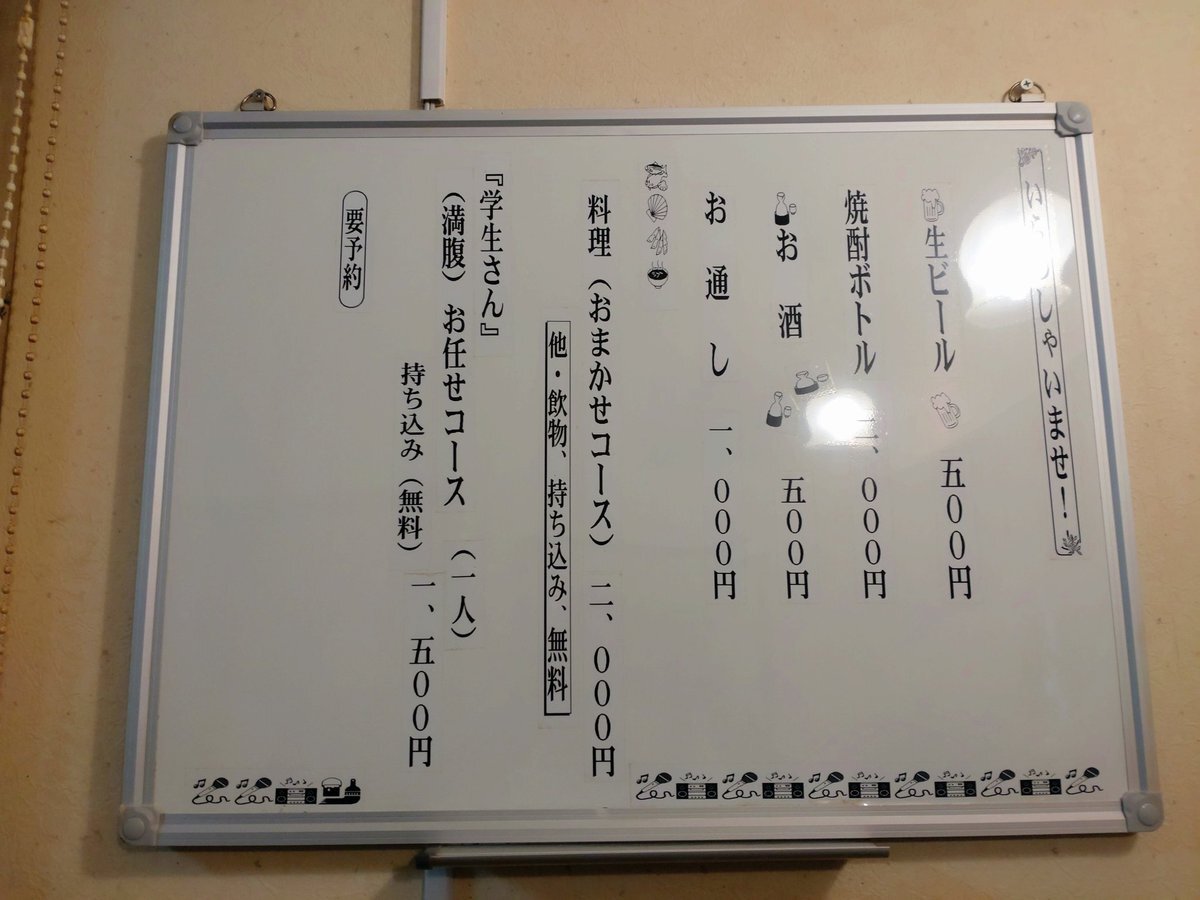 いらっしゃいませ！
生ビール 五００円
焼酎ボトル
お酒 五００円
お通し 一、０００円
料理（おまかせコース） 二、０００円
他・飲物、持ち込み、無料
『学生さん』
（満腹）お任せコース （一人）
持ち込み（無料） 一、五００円
要予約